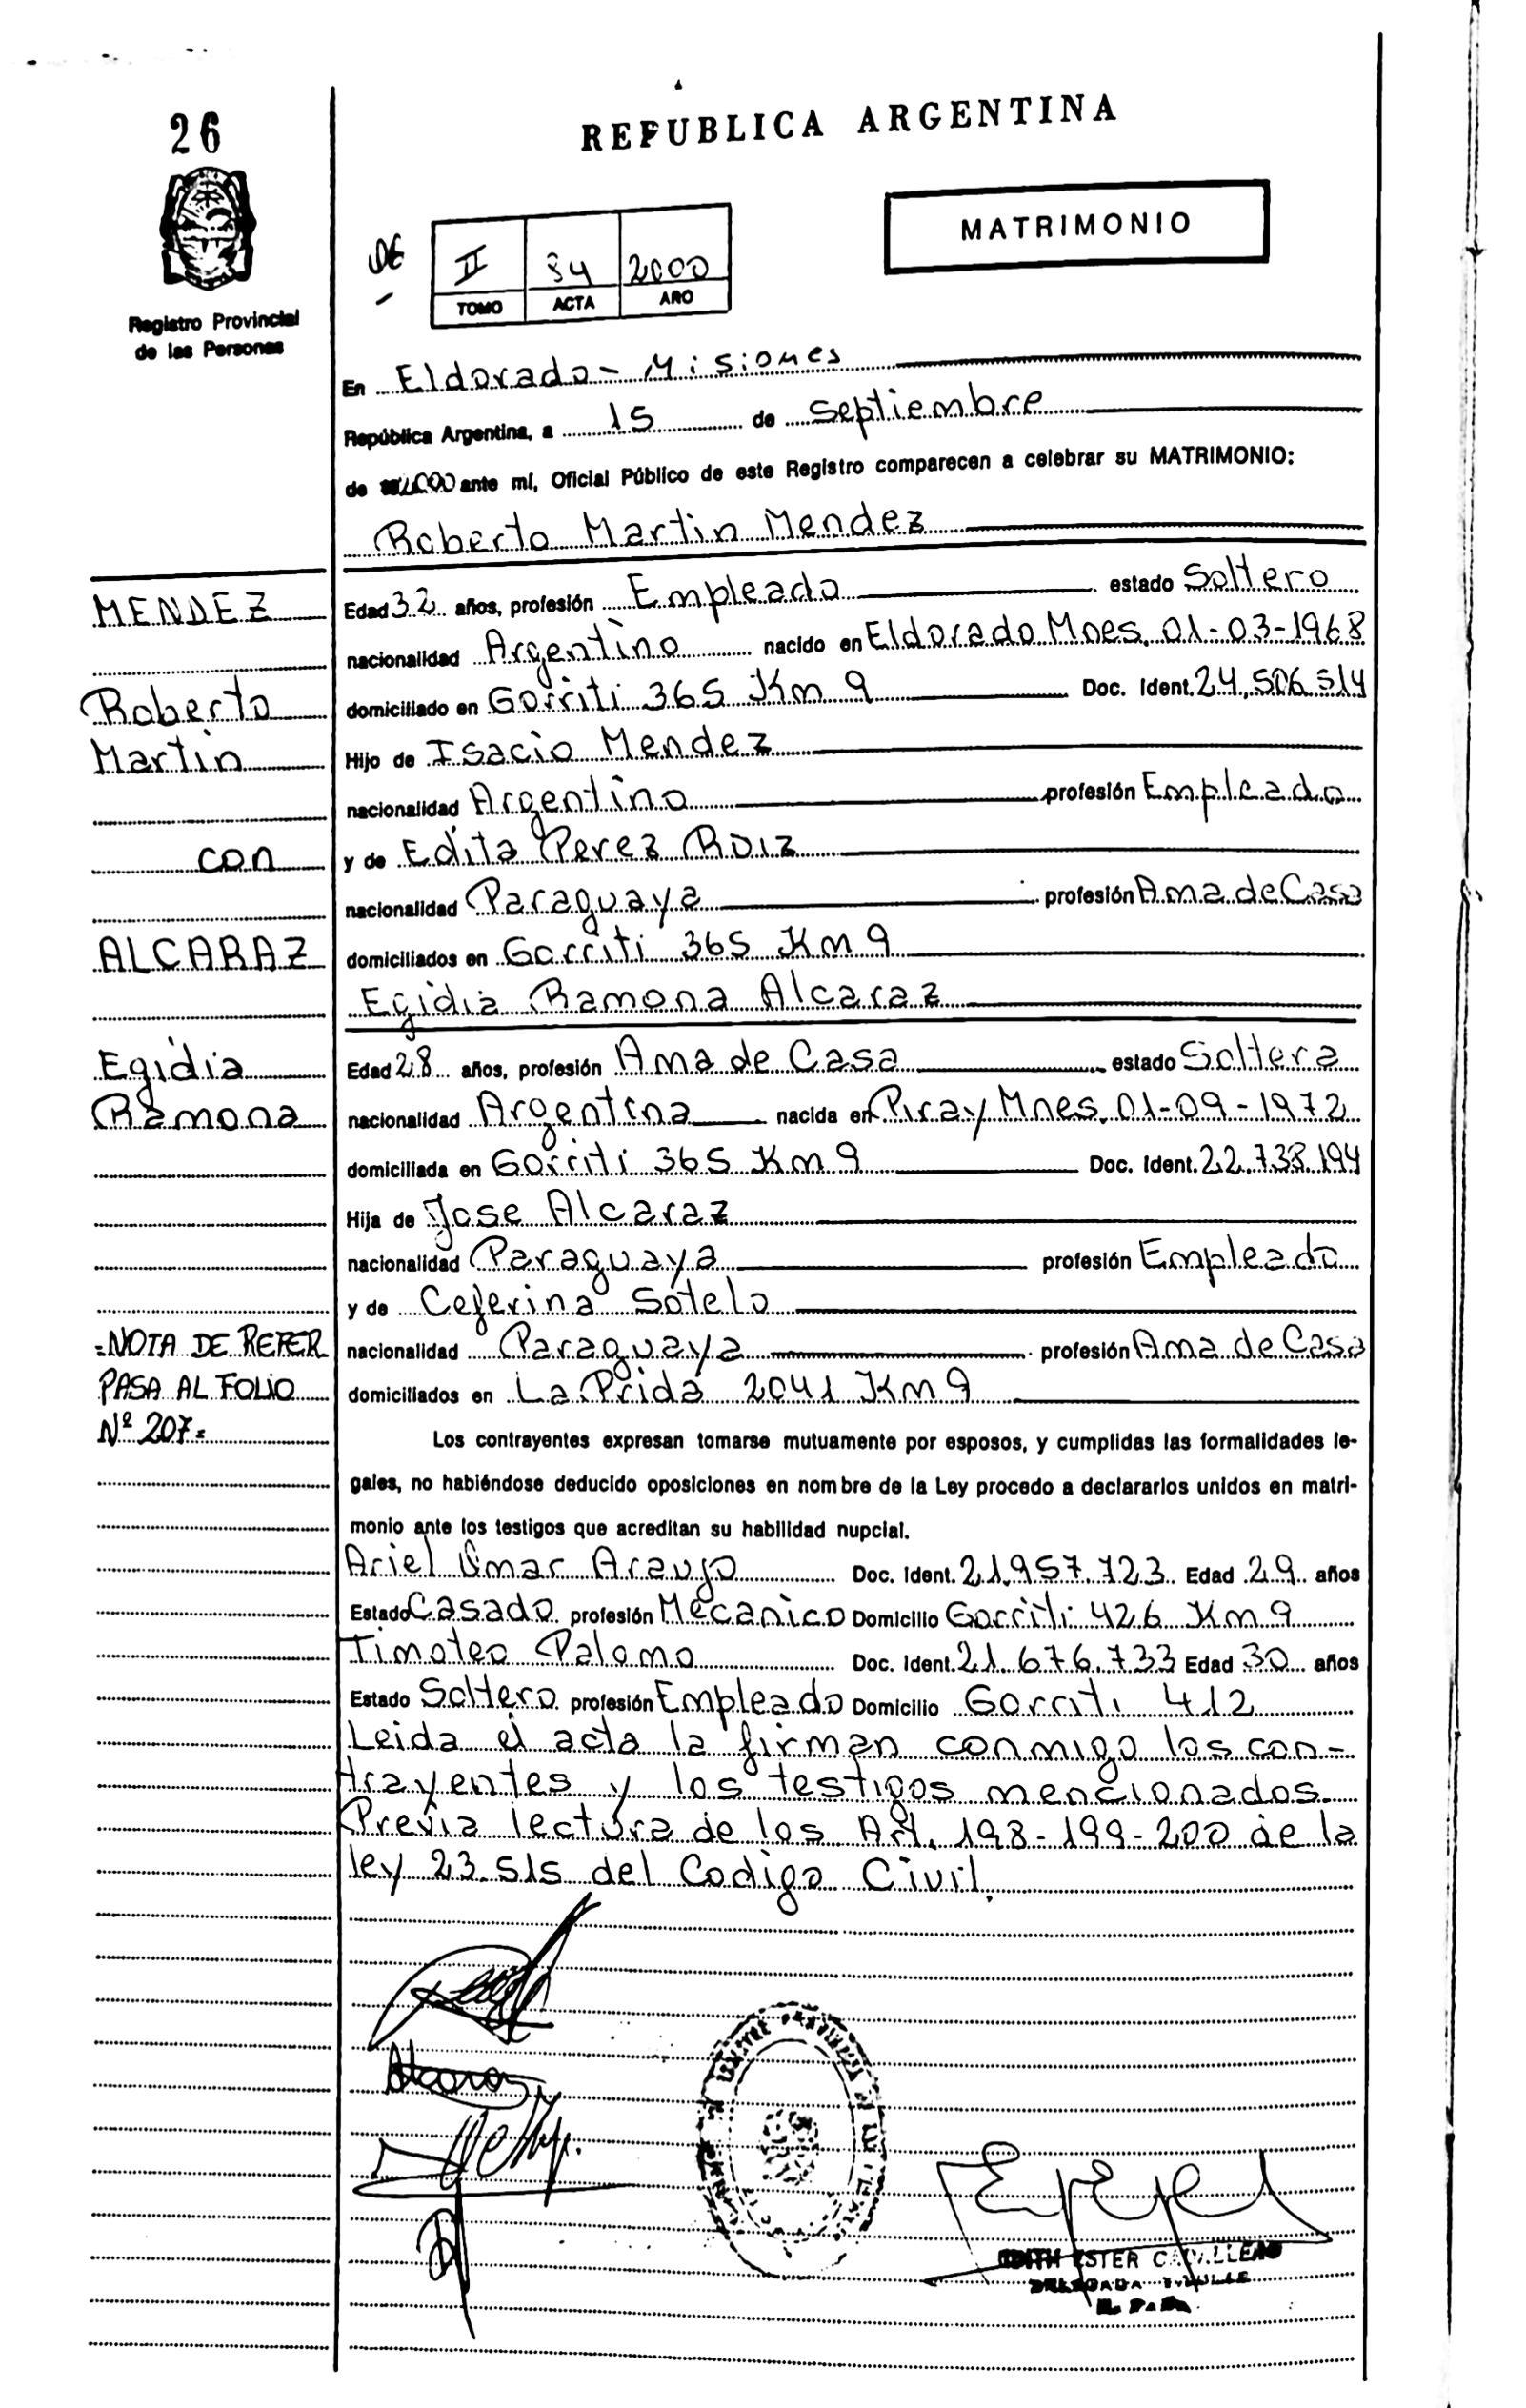 26
REPUBLICA ARGENTINA
MATRIMONIO
II 34 2000
TOMO ACTA AÑO
Registro Provincial
de las Personas
En Eldorado - Misiones
República Argentina, a 15 de Septiembre
de 2000 ante mí, Oficial Público de este Registro comparecen a celebrar su MATRIMONIO:
Roberto Martin Mendez
MENDEZ
Edad 32 años, profesión Empleado estado Soltero
nacionalidad Argentino nacido en Eldorado Mnes. 01-03-1968
Roberto
domiciliado en Gorriti 365 Km 9 Doc. Ident. 24.506.514
Martin
Hijo de Isacio Mendez
nacionalidad Argentino profesión Empleado
con
y de Edita Perez Ruiz
nacionalidad Paraguaya profesión Ama de Casa
ALCARAZ
domiciliados en Gorriti 365 Km 9
Egidia Ramona Alcaraz
Egidia
Edad 28 años, profesión Ama de Casa estado Soltera
Ramona
nacionalidad Argentina nacida en Piray Mnes. 01-09-1972
domiciliada en Gorriti 365 Km 9 Doc. Ident. 22.738.194
Hija de Jose Alcaraz
nacionalidad Paraguaya profesión Empleado
y de Ceferina Sotelo
=NOTA DE REFER
nacionalidad Paraguaya profesión Ama de Casa
PASA AL FOLIO
domiciliados en La Prida 2041 Km 9
Nº 207=
Los contrayentes expresan tomarse mutuamente por esposos, y cumplidas las formalidades le-
gales, no habiéndose deducido oposiciones en nombre de la Ley procedo a declararlos unidos en matri-
monio ante los testigos que acreditan su habilidad nupcial.
Ariel Omar Araujo Doc. Ident. 21.957.723 Edad 29 años
Estado Casado profesión Mecanico Domicilio Gorriti 426 Km 9
Timoteo Palomo Doc. Ident. 21.676.733 Edad 30 años
Estado Soltero profesión Empleado Domicilio Gorriti 412
Leida el acta la firman conmigo los con-
trayentes y los testigos mencionados.
Previa lectura de los Art. 198-199-200 de la
ley 23.515 del Codigo Civil.
EDITH ESTER
DELEGADA